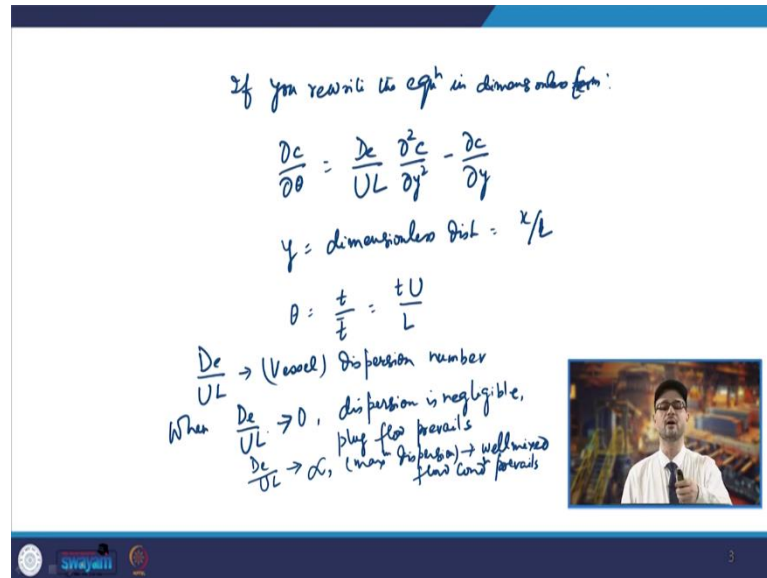 If you rewrite the eqⁿ in dimensionless form:
∂c/∂θ = De/UL ∂²c/∂y² - ∂c/∂y
y = dimensionless dist = x/L
θ = t/t̄ = tU/L
De/UL → (Vessel) Dispersion number
When De/UL → 0, dispersion is negligible,
plug flow prevails
De/UL → ∝, (max^m dispersion) → well mixed
flow condⁿ prevails
swayam
3